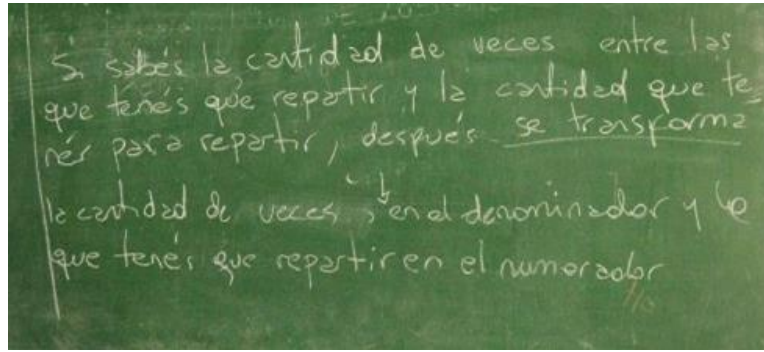 Si sabés la cantidad de veces entre las
que tenés que repartir y la cantidad que te
nés para repartir, después se transforma
la cantidad de veces, en el denominador y lo
que tenés que repartir en el numerador